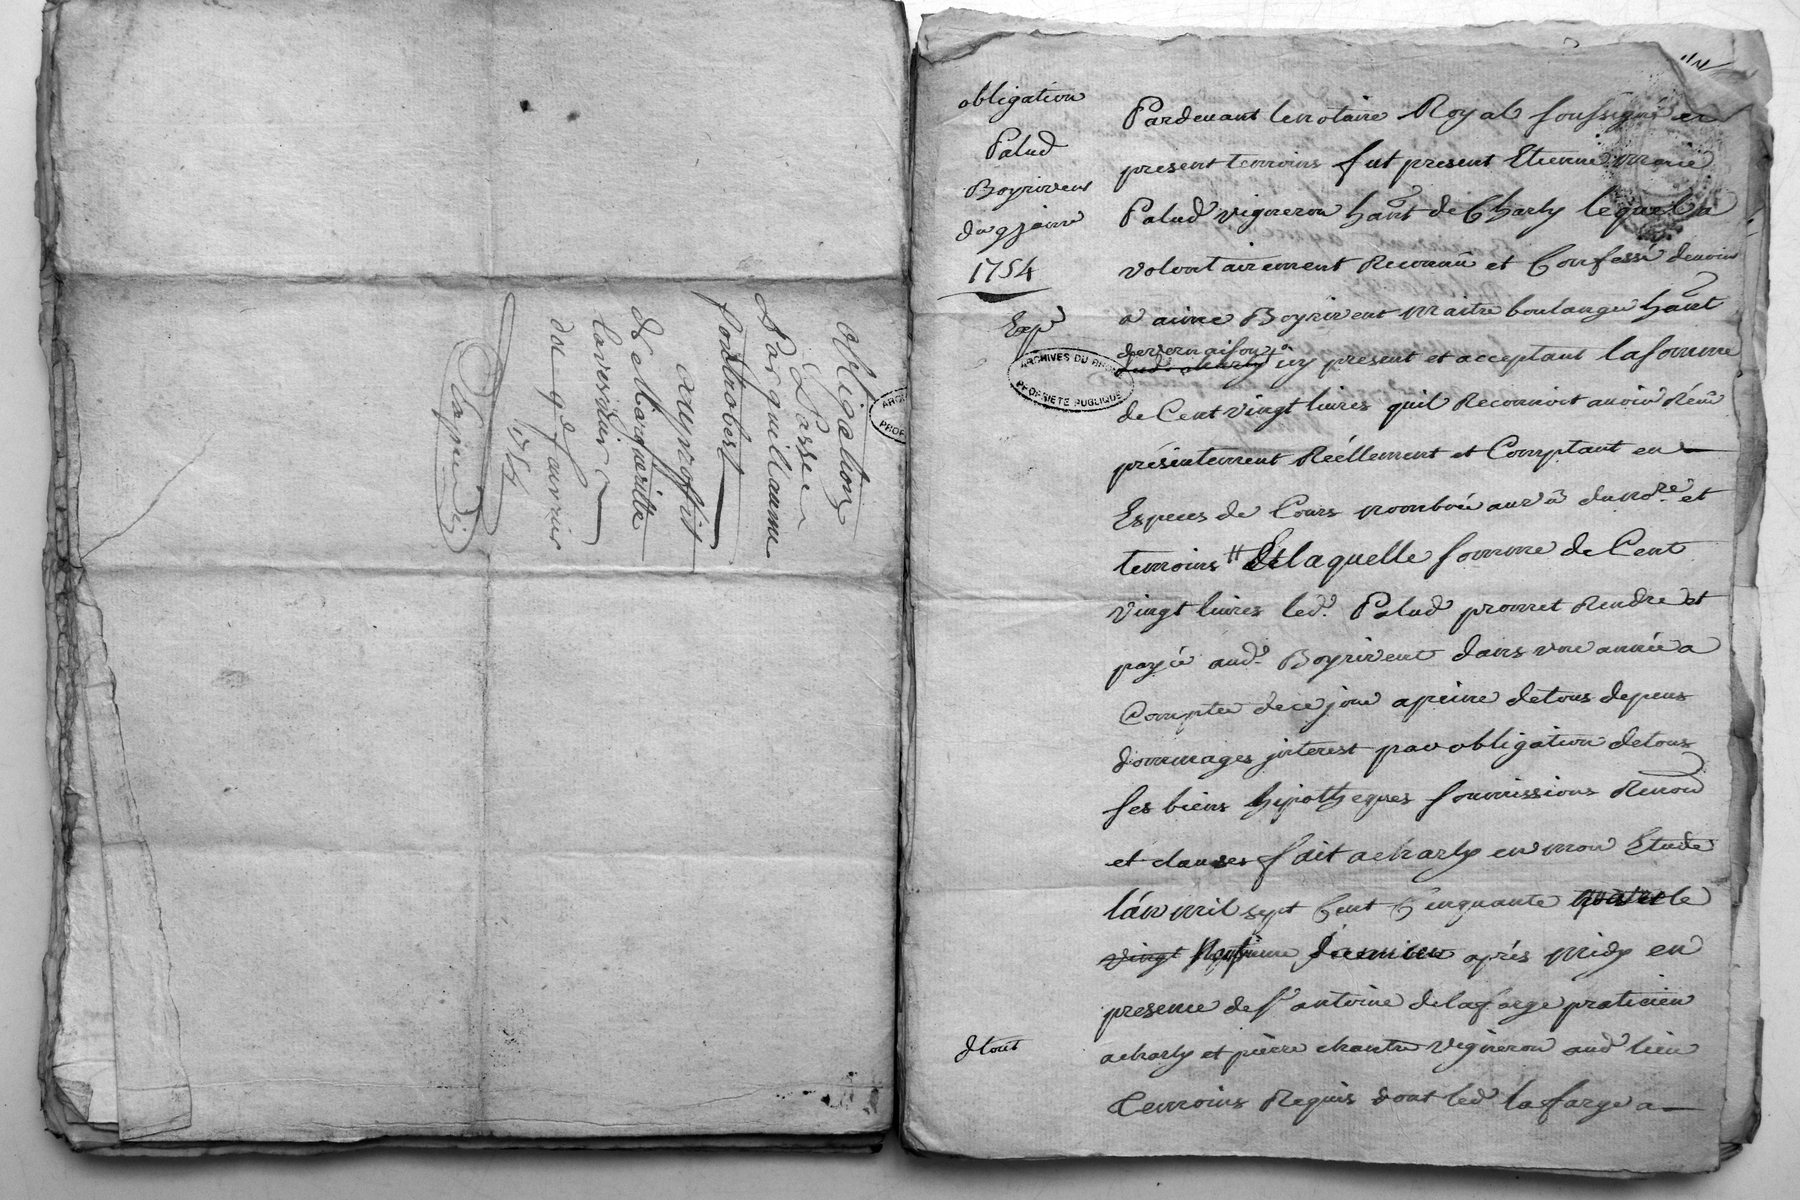 obligation
passée
par guillaume
fontrobert
au proffit
de Margueritte
laverriere
du 9e janvier
1754
ARCHI
PROP
obligation
Palud
Boyrivent
du 9 janvr
1754
Exp
ARCHIVES DU RHONE
PROPRIETE PUBLIQUE
Pardevant le notaire Royal soussigné et
present temoins fut present Etienne marie
Palud vigneron hant de Charly lequel a
volontairement Reconnu et Confessé devoir
a aimé Boyrivent maitre boulanger hant
de vernaison
dud. charly icy present et acceptant la somme
de Cent vingt livres quil Reconnoit avoir Réçu
présentement Réellement et Comptant en
Especes de Cours nombrée aux du nore et
temoins # De laquelle somme de Cent
vingt livres led. Palud promet Rendre et
payer aud. Boyrivent dans une année a
Compter de ce jour a peine de tous depens
dommages interest par obligation de tous
ses biens hipotheques soumissions Renon
et clauses fait a charly en mon Etude
lán mil sept Cent Cinquante quatre le
vingt neufvieme Janvier aprés midy en
presence de sr antoine delafarge praticien
a charly et pierre chantre vigneron aud lieu
temoins Requis dont led lafarge a